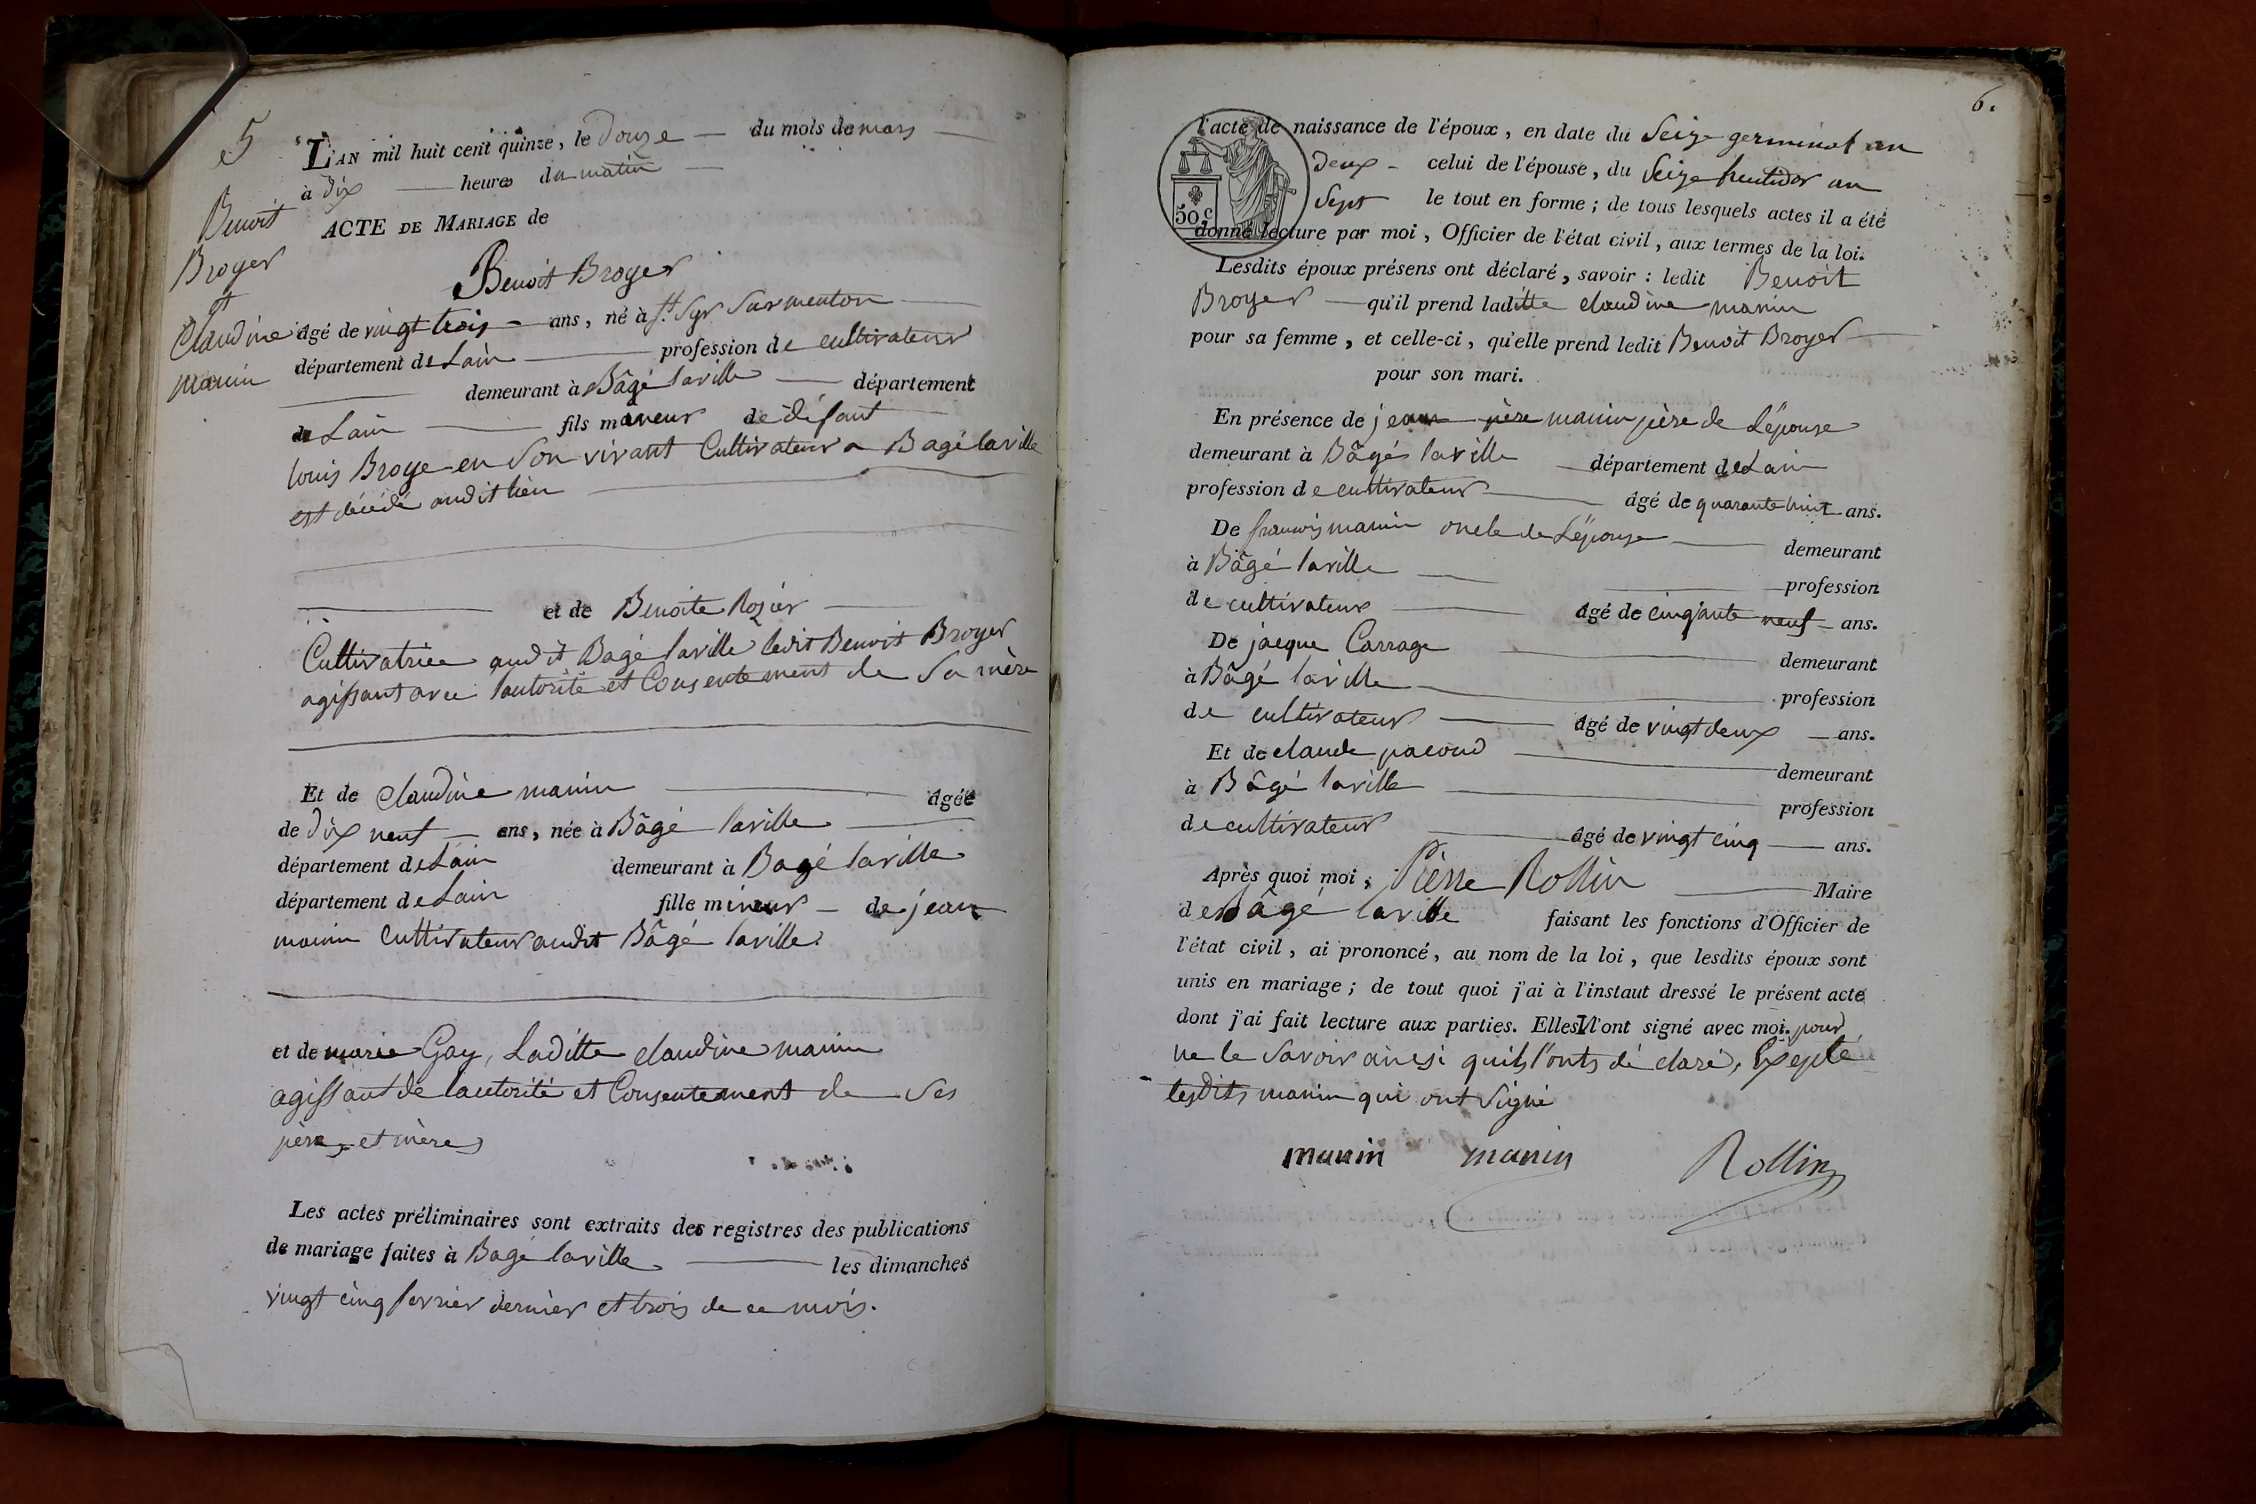 5
Benoit
Broyer
et
Claudine
manin
L'AN mil huit cent quinze, le Douze du mois de mars
à dix heures du matin
ACTE DE MARIAGE de
Benoit Broyer
âgé de vingt trois ans, né à St Syr Surmenton
département de Lain profession de cultivateur
demeurant à Bâgé laville département
de Lain fils mineur de défunt
louis Broye en Son vivant Cultivateur a Bagé laville
est décédé audit lieu
et de Benoite Rozier
Cultivatrice audit Bagé laville ledit Benoit Broyer
agissant avec lautorité et Consentement de Sa mère
Et de Claudine manin âgée
de dix neuf ans, née à Bâgé laville
département de Lain demeurant à Bagé laville
département de Lain fille mineur de jean
manin Cultivateur audit Bâgé laville
et de marie Gay, Laditte claudine manin
agissant de lautorité et Consentement de Ses
père et mère
Les actes préliminaires sont extraits des registres des publications
de mariage faites à Bagé laville les dimanches
vingt cinq fevrier dernier et trois de ce mois.
6.
l'acte de naissance de l'époux, en date du Seize germinal an
deux celui de l'épouse, du Seize fructidor an
Sept le tout en forme; de tous lesquels actes il a été
50 c
donné lecture par moi, Officier de l'état civil, aux termes de la loi.
Lesdits époux présens ont déclaré, savoir: ledit Benoit
Broyer qu'il prend laditte claudine manin
pour sa femme, et celle-ci, qu'elle prend ledit Benoit Broyer
pour son mari.
En présence de jean père manin père de Lépouse
demeurant à Bâgé laville département de Lain
profession de cultivateur âgé de quarante huit ans.
De francois manin oncle de Lépouse demeurant
à Bâgé laville profession
de cultivateur âgé de cinqante neuf ans.
De jacque Carrage demeurant
à Bâgé laville profession
de cultivateur âgé de vingt deux ans.
Et de claude pacoud demeurant
à Bâgé laville profession
de cultivateur âgé de vingt cinq ans.
Après quoi moi, Pierre Rollin Maire
de Bâgé laville faisant les fonctions d'Officier de
l'état civil, ai prononcé, au nom de la loi, que lesdits époux sont
unis en mariage; de tout quoi j'ai à l'instaut dressé le présent acte
dont j'ai fait lecture aux parties. Elles N l'ont signé avec moi. pour
ne le Savoir ainsi quils l'onts dé claré, Exepté
lesdits manin qui ont Signé
manin manin Rollin